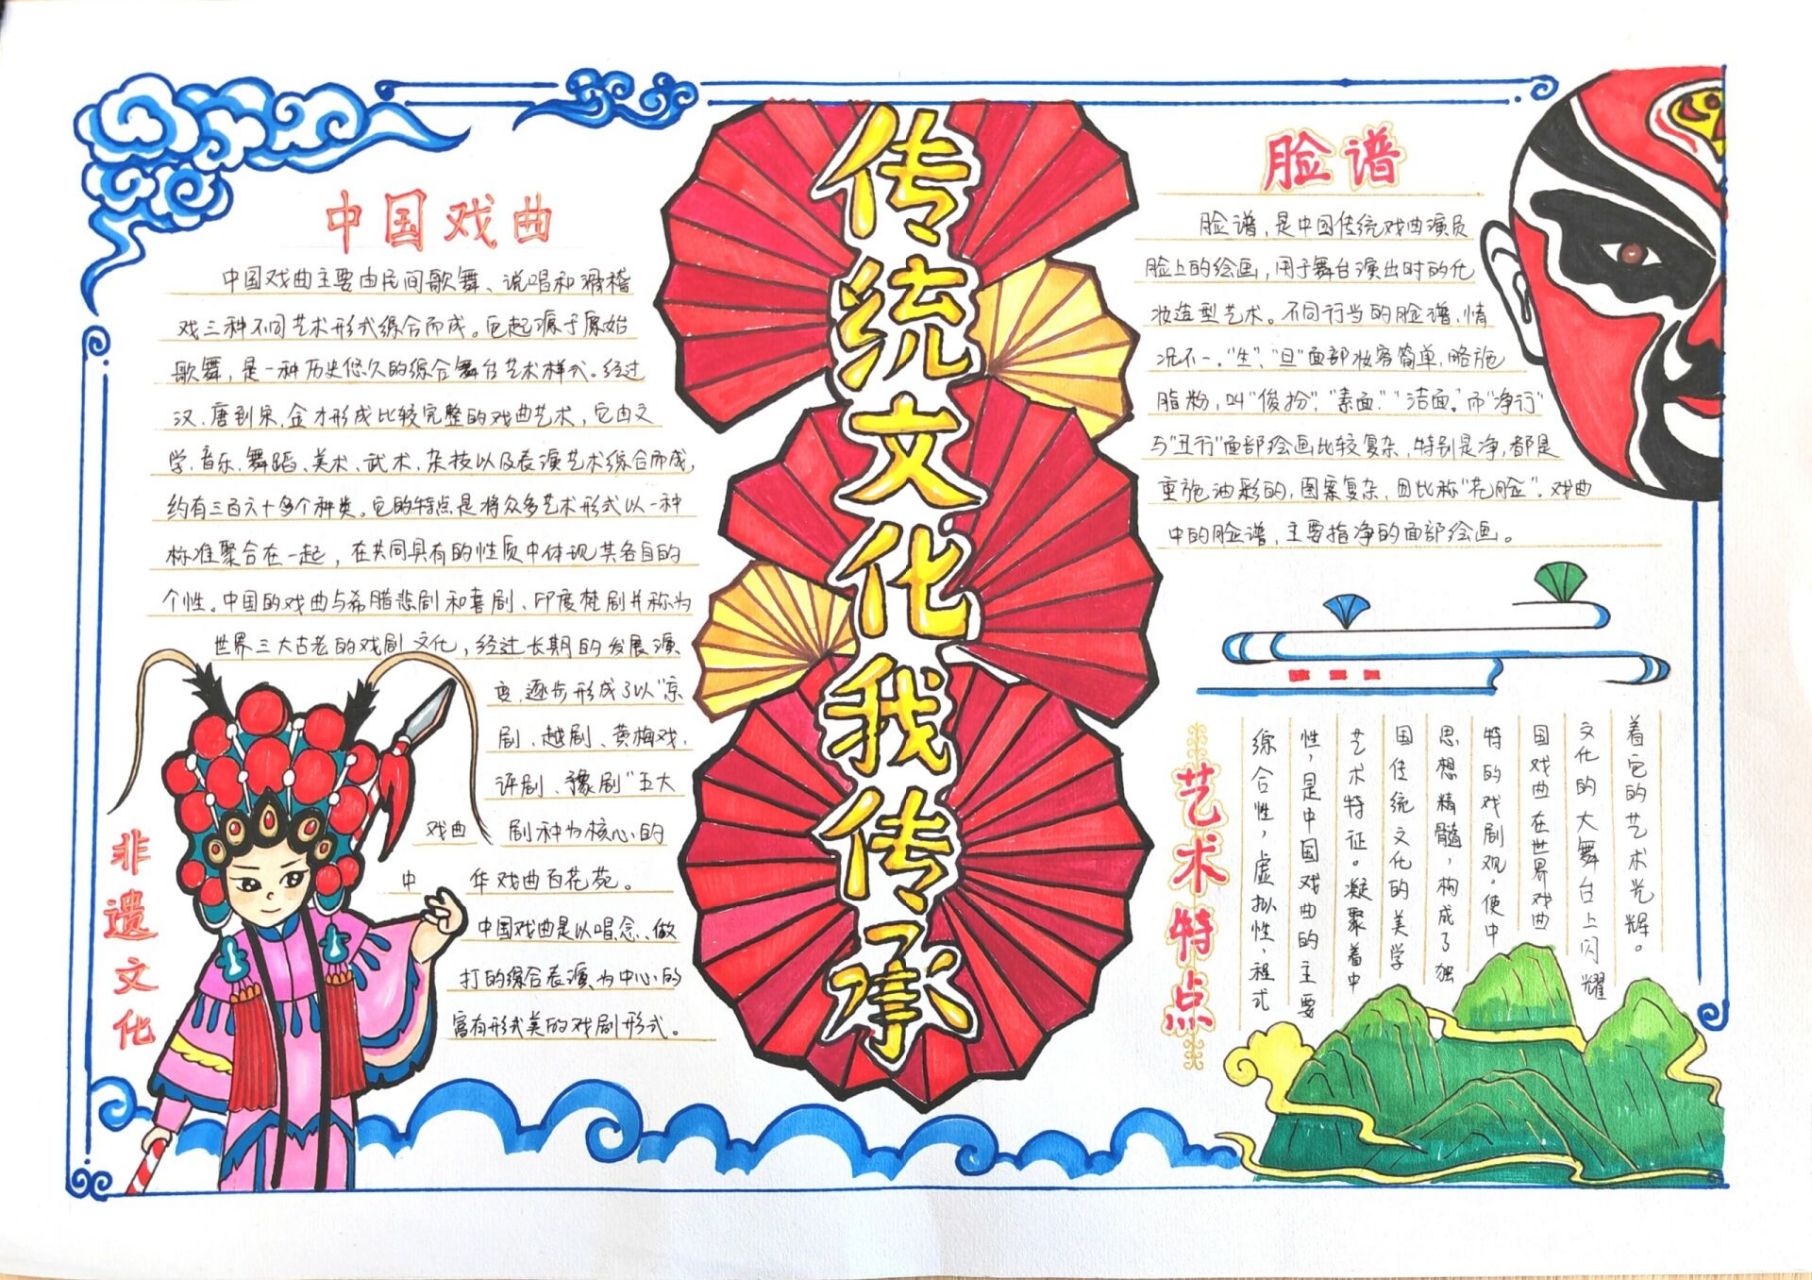 传统文化我传承
中国戏曲
中国戏曲主要由民间歌舞、说唱和滑稽
戏三种不同艺术形式综合而成。它起源于原始
歌舞，是一种历史悠久的综合舞台艺术样式。经过
汉、唐到宋、金才形成比较完整的戏曲艺术，它由文
学、音乐、舞蹈、美术、武术、杂技以及表演艺术综合而成，
约有三百六十多个种类。它的特点是将众多艺术形式以一种
标准聚合在一起，在共同具有的性质中体现其各自的
个性。中国的戏曲与希腊悲剧和喜剧、印度梵剧并称为
世界三大古老的戏剧文化，经过长期的发展演
变，逐步形成了以“京
剧、越剧、黄梅戏、
评剧、豫剧”五大
戏曲 剧种为核心的
中 华戏曲百花苑。
中国戏曲是以唱、念、做、
打的综合表演为中心的
富有形式美的戏剧形式。
非遗文化
脸谱
脸谱，是中国传统戏曲演员
脸上的绘画，用于舞台演出时的化
妆造型艺术。不同行当的脸谱，情
况不一。“生”、“旦”面部妆容简单，略施
脂粉，叫“俊扮”、“素面”、“洁面”。而“净行”
与“丑行”面部绘画比较复杂，特别是净，都是
重施油彩的，图案复杂，因此称“花脸”。戏曲
中的脸谱，主要指净的面部绘画。
艺术特点
综合性，虚拟性，程式
性，是中国戏曲的主要
艺术特征。凝聚着中
国传统文化的美学
思想精髓，构成了独
特的戏剧观，使中
国戏曲在世界戏曲
文化的大舞台上闪耀
着它的艺术光辉。